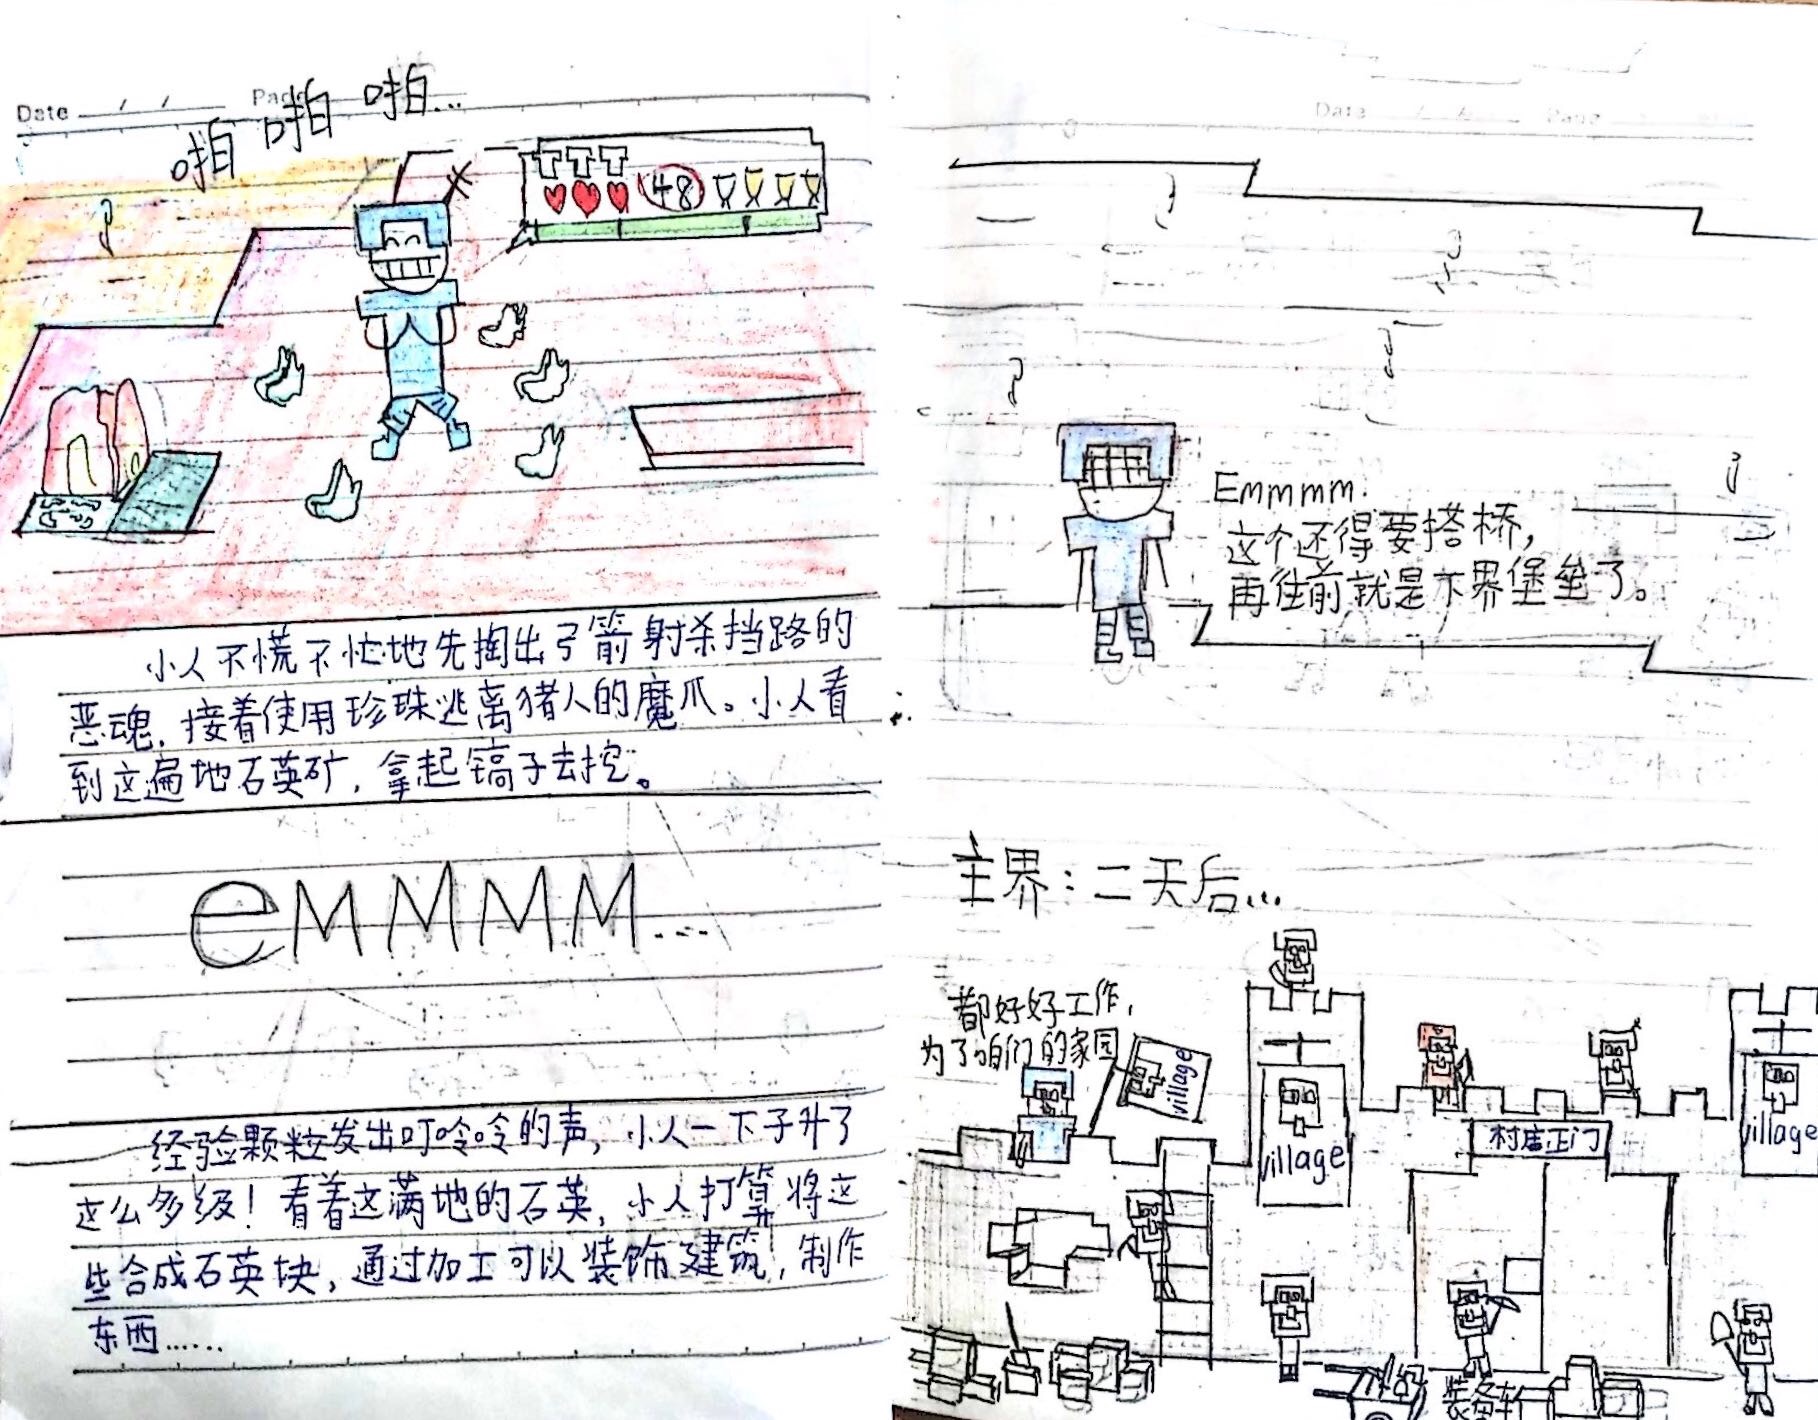 Date / / Page
啪 啪 啪...
48
小人不慌不忙地先掏出弓箭射杀挡路的
恶魂，接着使用珍珠逃离猪人的魔爪。小人看
到这遍地石英矿，拿起镐子去挖。
eMMMM......
经验颗粒发出叮呤呤的声，小人一下子升了
这么多级！看着这满地的石英，小人打算将这
些合成石英块，通过加工可以装饰建筑，制作
东西……
Date / / Page
Emmmm.
这个还得要搭桥，
再往前就是下界堡垒了。
主界：二天后...
都好好工作，
为了咱们的家园
village
village
村庄正门
village
装备车